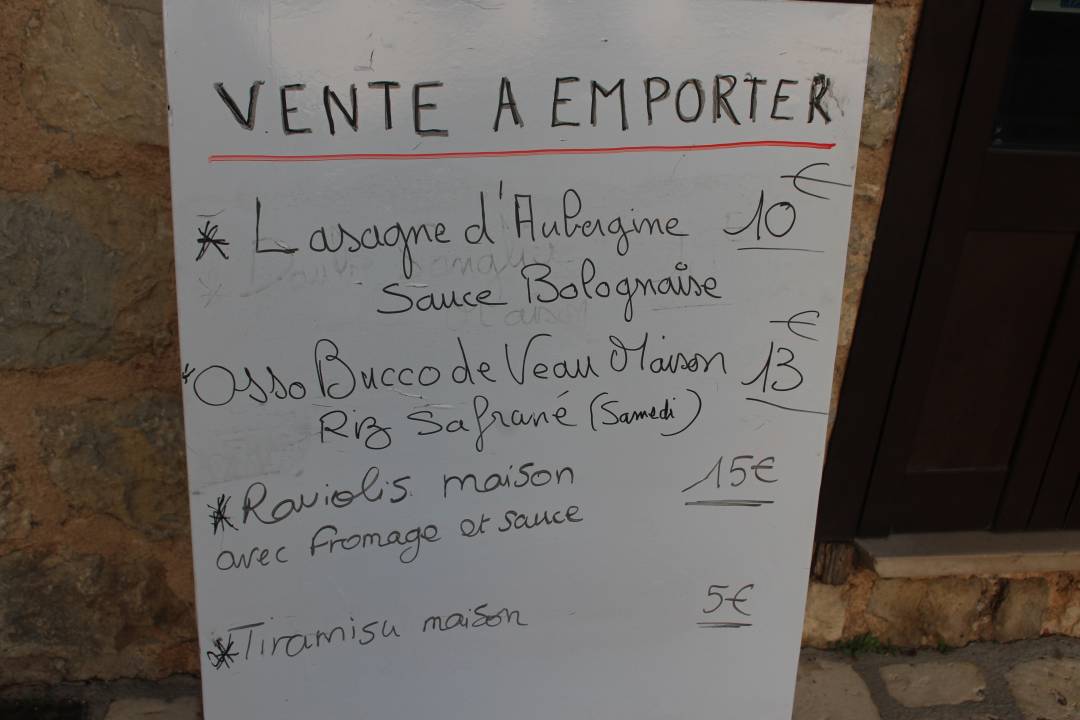 VENTE A EMPORTER
* Lasagne d'Aubergine 10€
Sauce Bolognaise
* Osso Bucco de Veau Maison 13€
Riz Safrané (Samedi)
* Raviolis maison 15€
avec fromage et sauce
* Tiramisu maison 5€